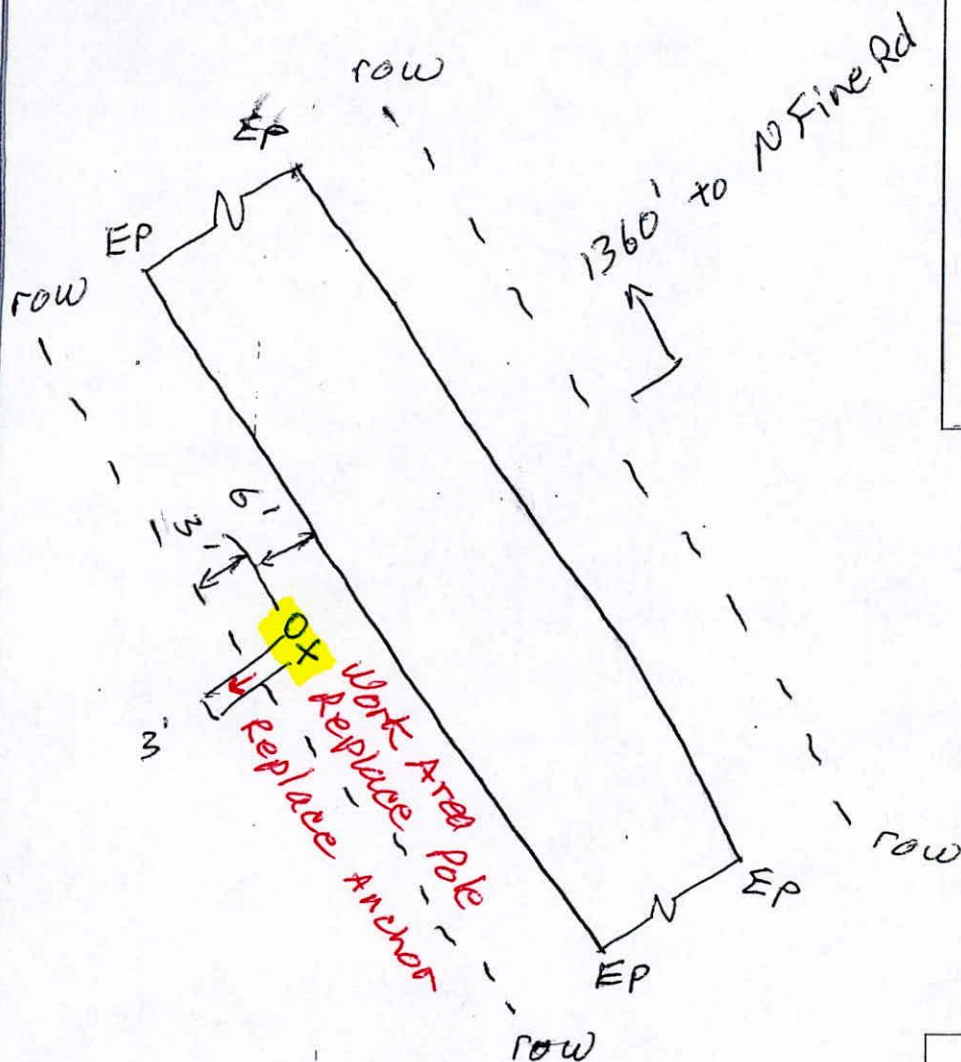 row
Ep
EP
row
1360' to N Fine Rd
6'
3'
O
X
3'
Work Area
Replace Pole
Replace Anchor
row
EP
EP
row